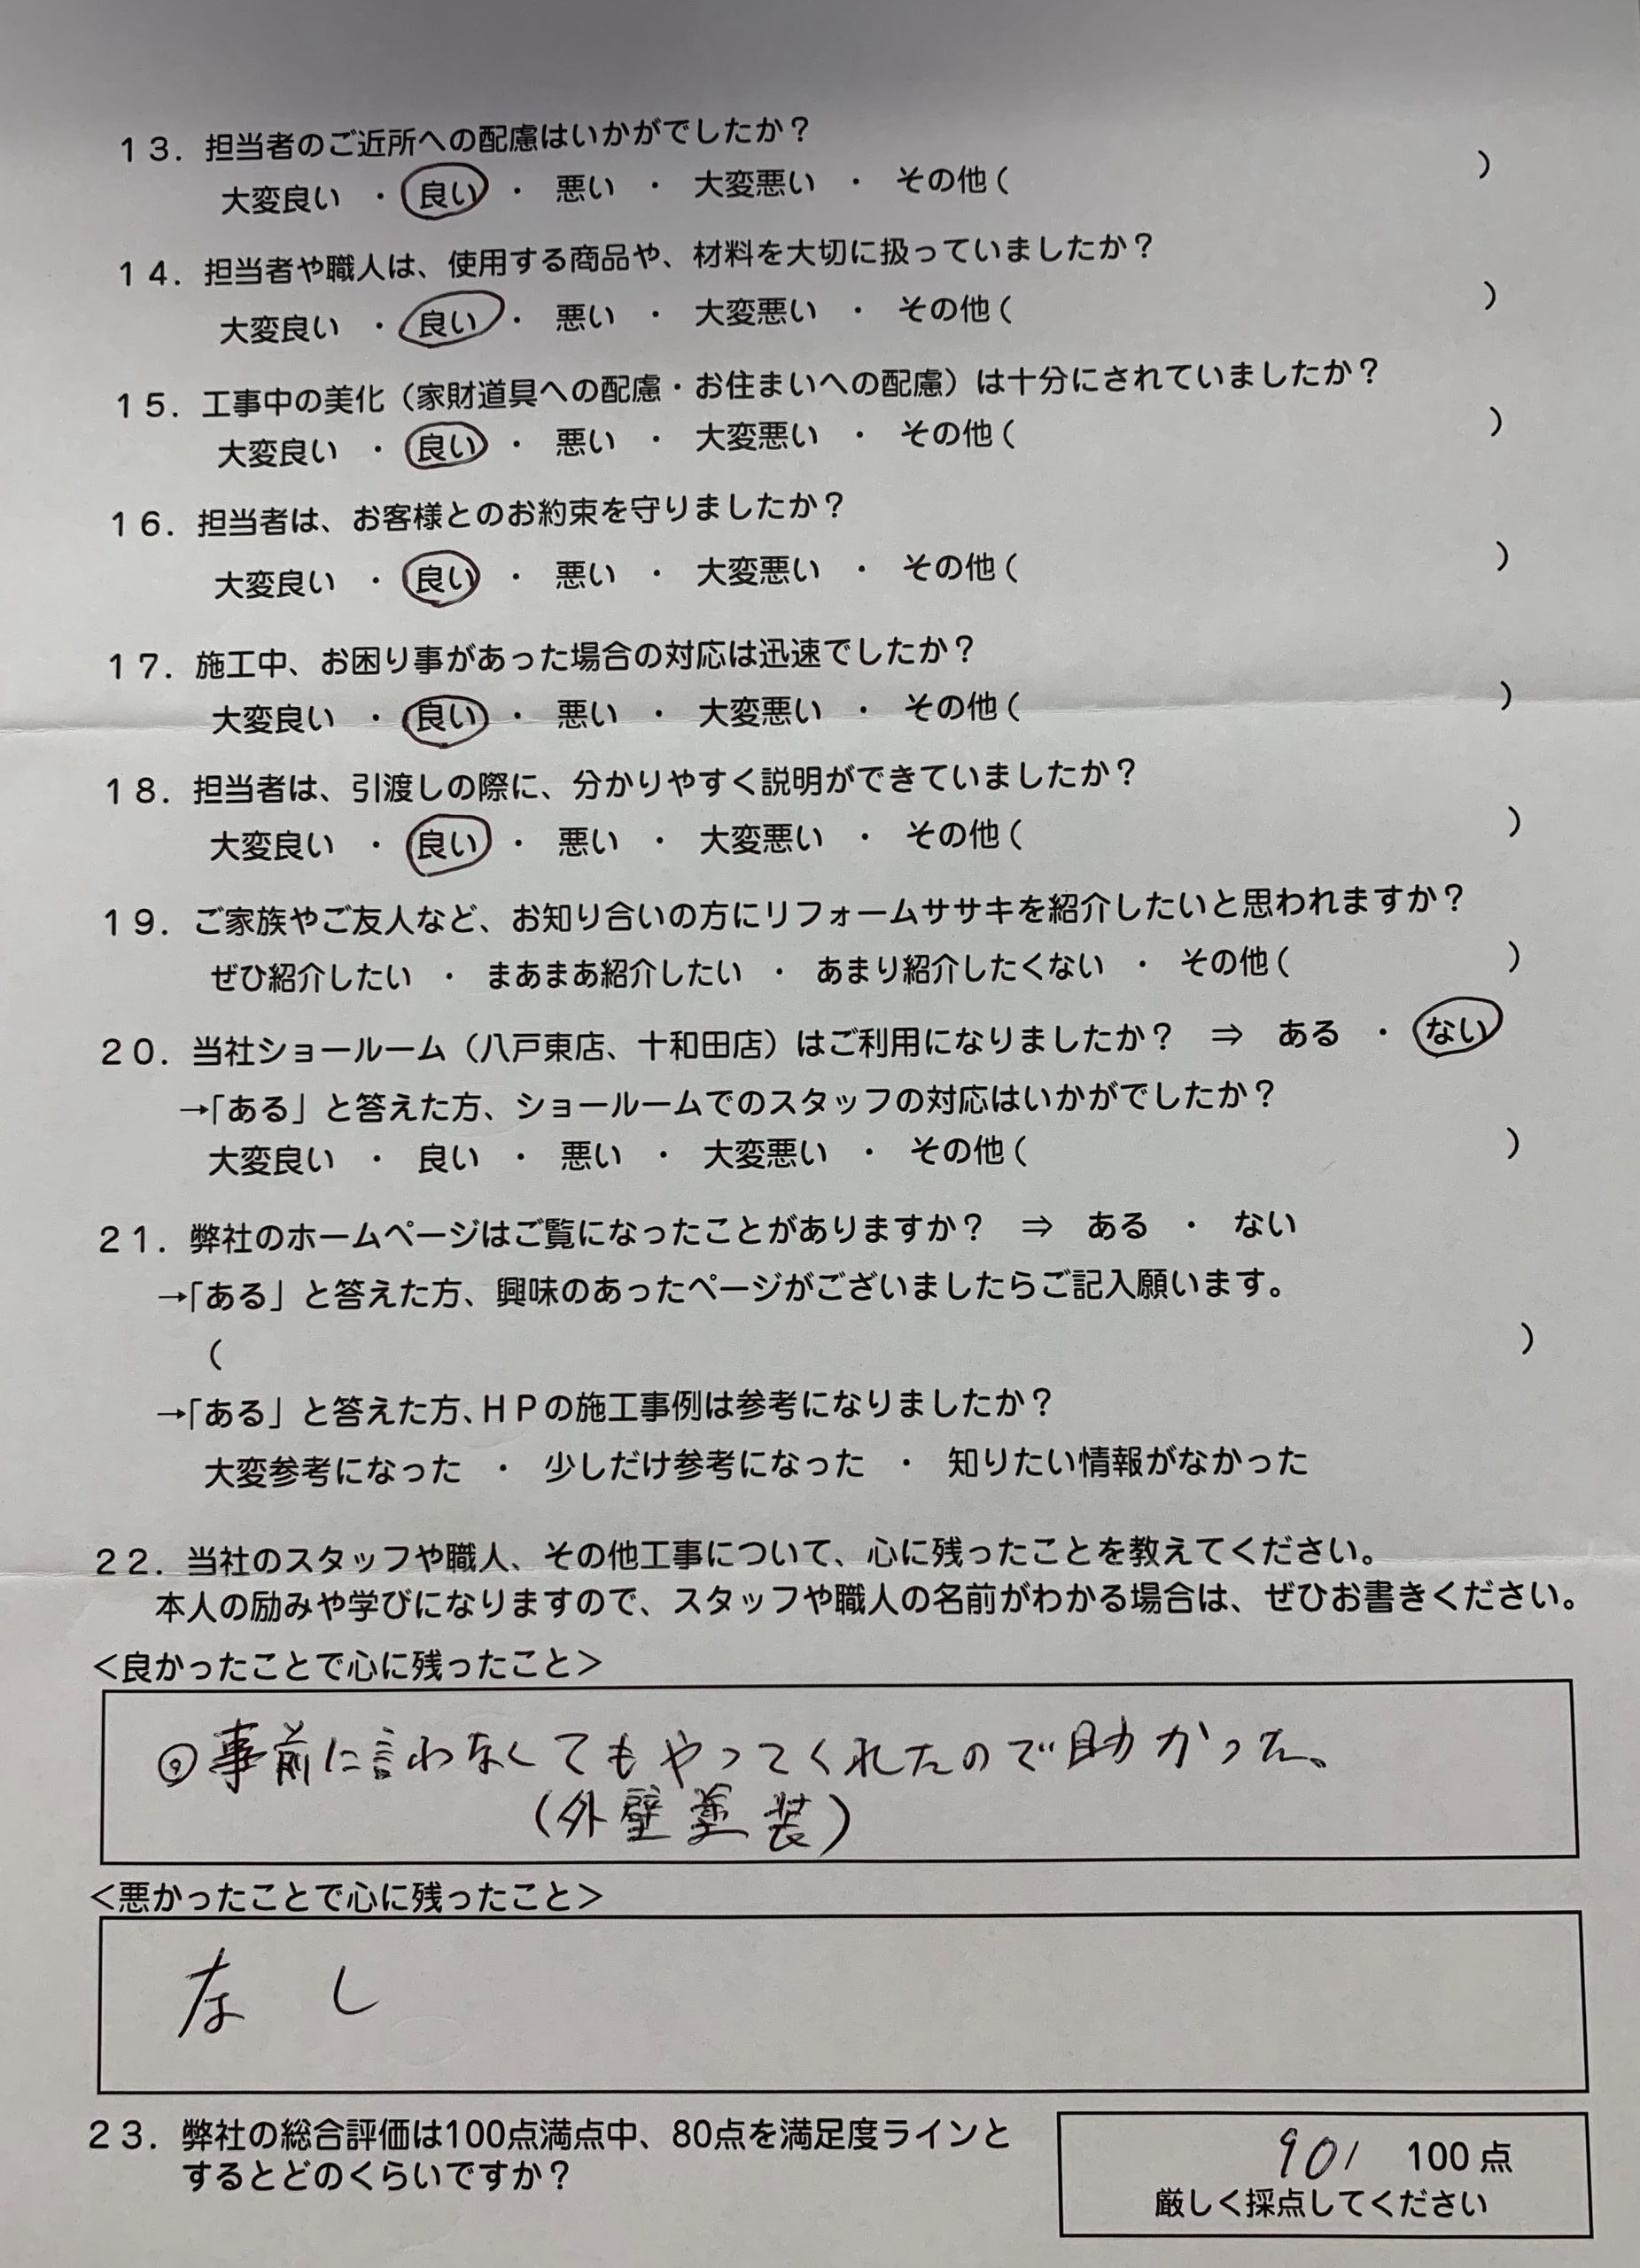 13．担当者のご近所への配慮はいかがでしたか？
大変良い ・ 良い ・ 悪い ・ 大変悪い ・ その他（ ）
14．担当者や職人は、使用する商品や、材料を大切に扱っていましたか？
大変良い ・ 良い ・ 悪い ・ 大変悪い ・ その他（ ）
15．工事中の美化（家財道具への配慮・お住まいへの配慮）は十分にされていましたか？
大変良い ・ 良い ・ 悪い ・ 大変悪い ・ その他（ ）
16．担当者は、お客様とのお約束を守りましたか？
大変良い ・ 良い ・ 悪い ・ 大変悪い ・ その他（ ）
17．施工中、お困り事があった場合の対応は迅速でしたか？
大変良い ・ 良い ・ 悪い ・ 大変悪い ・ その他（ ）
18．担当者は、引渡しの際に、分かりやすく説明ができていましたか？
大変良い ・ 良い ・ 悪い ・ 大変悪い ・ その他（ ）
19．ご家族やご友人など、お知り合いの方にリフォームササキを紹介したいと思われますか？
ぜひ紹介したい ・ まあまあ紹介したい ・ あまり紹介したくない ・ その他（ ）
20．当社ショールーム（八戸東店、十和田店）はご利用になりましたか？ ⇒ ある ・ ない
→「ある」と答えた方、ショールームでのスタッフの対応はいかがでしたか？
大変良い ・ 良い ・ 悪い ・ 大変悪い ・ その他（ ）
21．弊社のホームページはご覧になったことがありますか？ ⇒ ある ・ ない
→「ある」と答えた方、興味のあったページがございましたらご記入願います。
（ ）
→「ある」と答えた方、ＨＰの施工事例は参考になりましたか？
大変参考になった ・ 少しだけ参考になった ・ 知りたい情報がなかった
22．当社のスタッフや職人、その他工事について、心に残ったことを教えてください。
本人の励みや学びになりますので、スタッフや職人の名前がわかる場合は、ぜひお書きください。
＜良かったことで心に残ったこと＞
◎事前に言わなくてもやってくれたので助かった、
（外壁塗装）
＜悪かったことで心に残ったこと＞
なし
23．弊社の総合評価は100点満点中、80点を満足度ラインと
するとどのくらいですか？
90/ 100点
厳しく採点してください